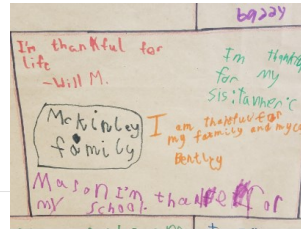 bqzzy
I'm thankful for
life
-Will M.
I'm thankf
for my
sis:tanner:c
McKinley
family
I am thankful for
my farmily and myca
Bentley
Mason I'm than for
my school.